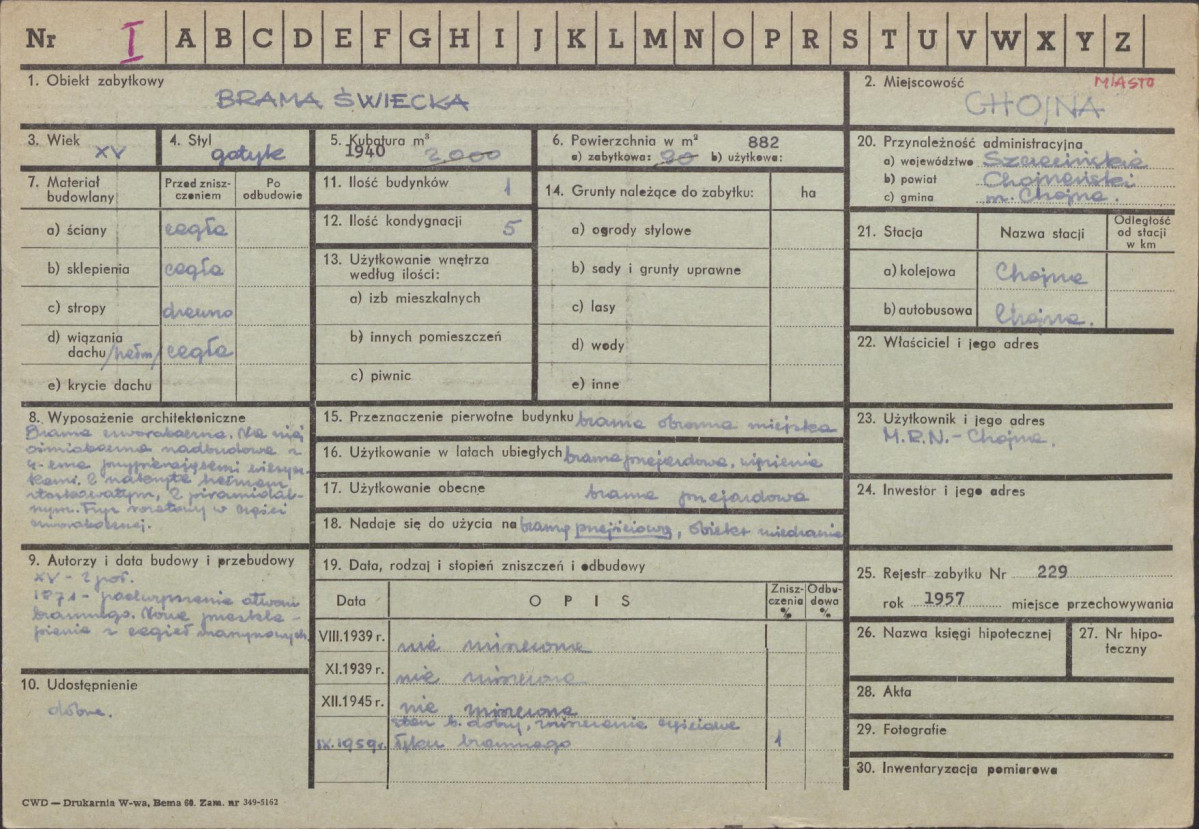 Nr I A B C D E F G H I J K L M N O P R S T U V W X Y Z
1. Obiekt zabytkowy
BRAMA ŚWIECKA
2. Miejscowość
MIASTO
CHOJNA
3. Wiek
XV
4. Styl
gotyk
5. Kubatura m³
1940 2000
6. Powierzchnia w m² 882
a) zabytkowa: 90 b) użytkowa:
7. Materiał budowlany
Przed zniszczeniem
Po odbudowie
a) ściany cegła
b) sklepienia cegła
c) stropy drewno
d) wiązania
dachu /hełm/ cegła
e) krycie dachu
8. Wyposażenie architektoniczne
Brama czworoboczna. Na niej
ośmioboczna nadbudowa z
4-ema przypierającymi wieżycz-
kami. 2 nakryte hełmem
stożkowatym, 2 piramidal-
nym. Fryz
w części
czworobocznej.
9. Autorzy i data budowy i przebudowy
XV - 2 poł.
1871 - podwyższenie otworu
bramnego. Nowe przeskle-
pienie z cegieł maszynowych
10. Udostępnienie
dobre.
11. Ilość budynków 1
12. Ilość kondygnacji 5
13. Użytkowanie wnętrza
według ilości:
a) izb mieszkalnych
b) innych pomieszczeń
c) piwnic
14. Grunty należące do zabytku: ha
a) ogrody stylowe
b) sady i grunty uprawne
c) lasy
d) wody
e) inne
15. Przeznaczenie pierwotne budynku brama obronna miejska
16. Użytkowanie w latach ubiegłych brama przejazdowa, więzienie
17. Użytkowanie obecne brama przejazdowa
18. Nadaje się do użycia na bramę przejściową, obiekt zwiedzania
19. Data, rodzaj i stopień zniszczeń i odbudowy
Data
O P I S
Zniszczenia %
Odbudowa %
VIII.1939 r. nie zniszczona
XI.1939 r. nie zniszczona
XII.1945 r. nie zniszczona
stan b. dobry, zniszczenie częściowe
IX.1959r. łęku bramnego 1
20. Przynależność administracyjna
a) województwo Szczecińskie
b) powiat Chojneński
c) gmina m. Chojna.
21. Stacja
Nazwa stacji
Odległość
od stacji
w km
a) kolejowa Chojna
b) autobusowa Chojna.
22. Właściciel i jego adres
23. Użytkownik i jego adres
M.R.N. - Chojna.
24. Inwestor i jego adres
25. Rejestr zabytku Nr 229
rok 1957 miejsce przechowywania
26. Nazwa księgi hipotecznej
27. Nr hipo-
teczny
28. Akta
29. Fotografie
30. Inwentaryzacja pomiarowa
CWD — Drukarnia W-wa, Bema 60. Zam. nr 349-5162